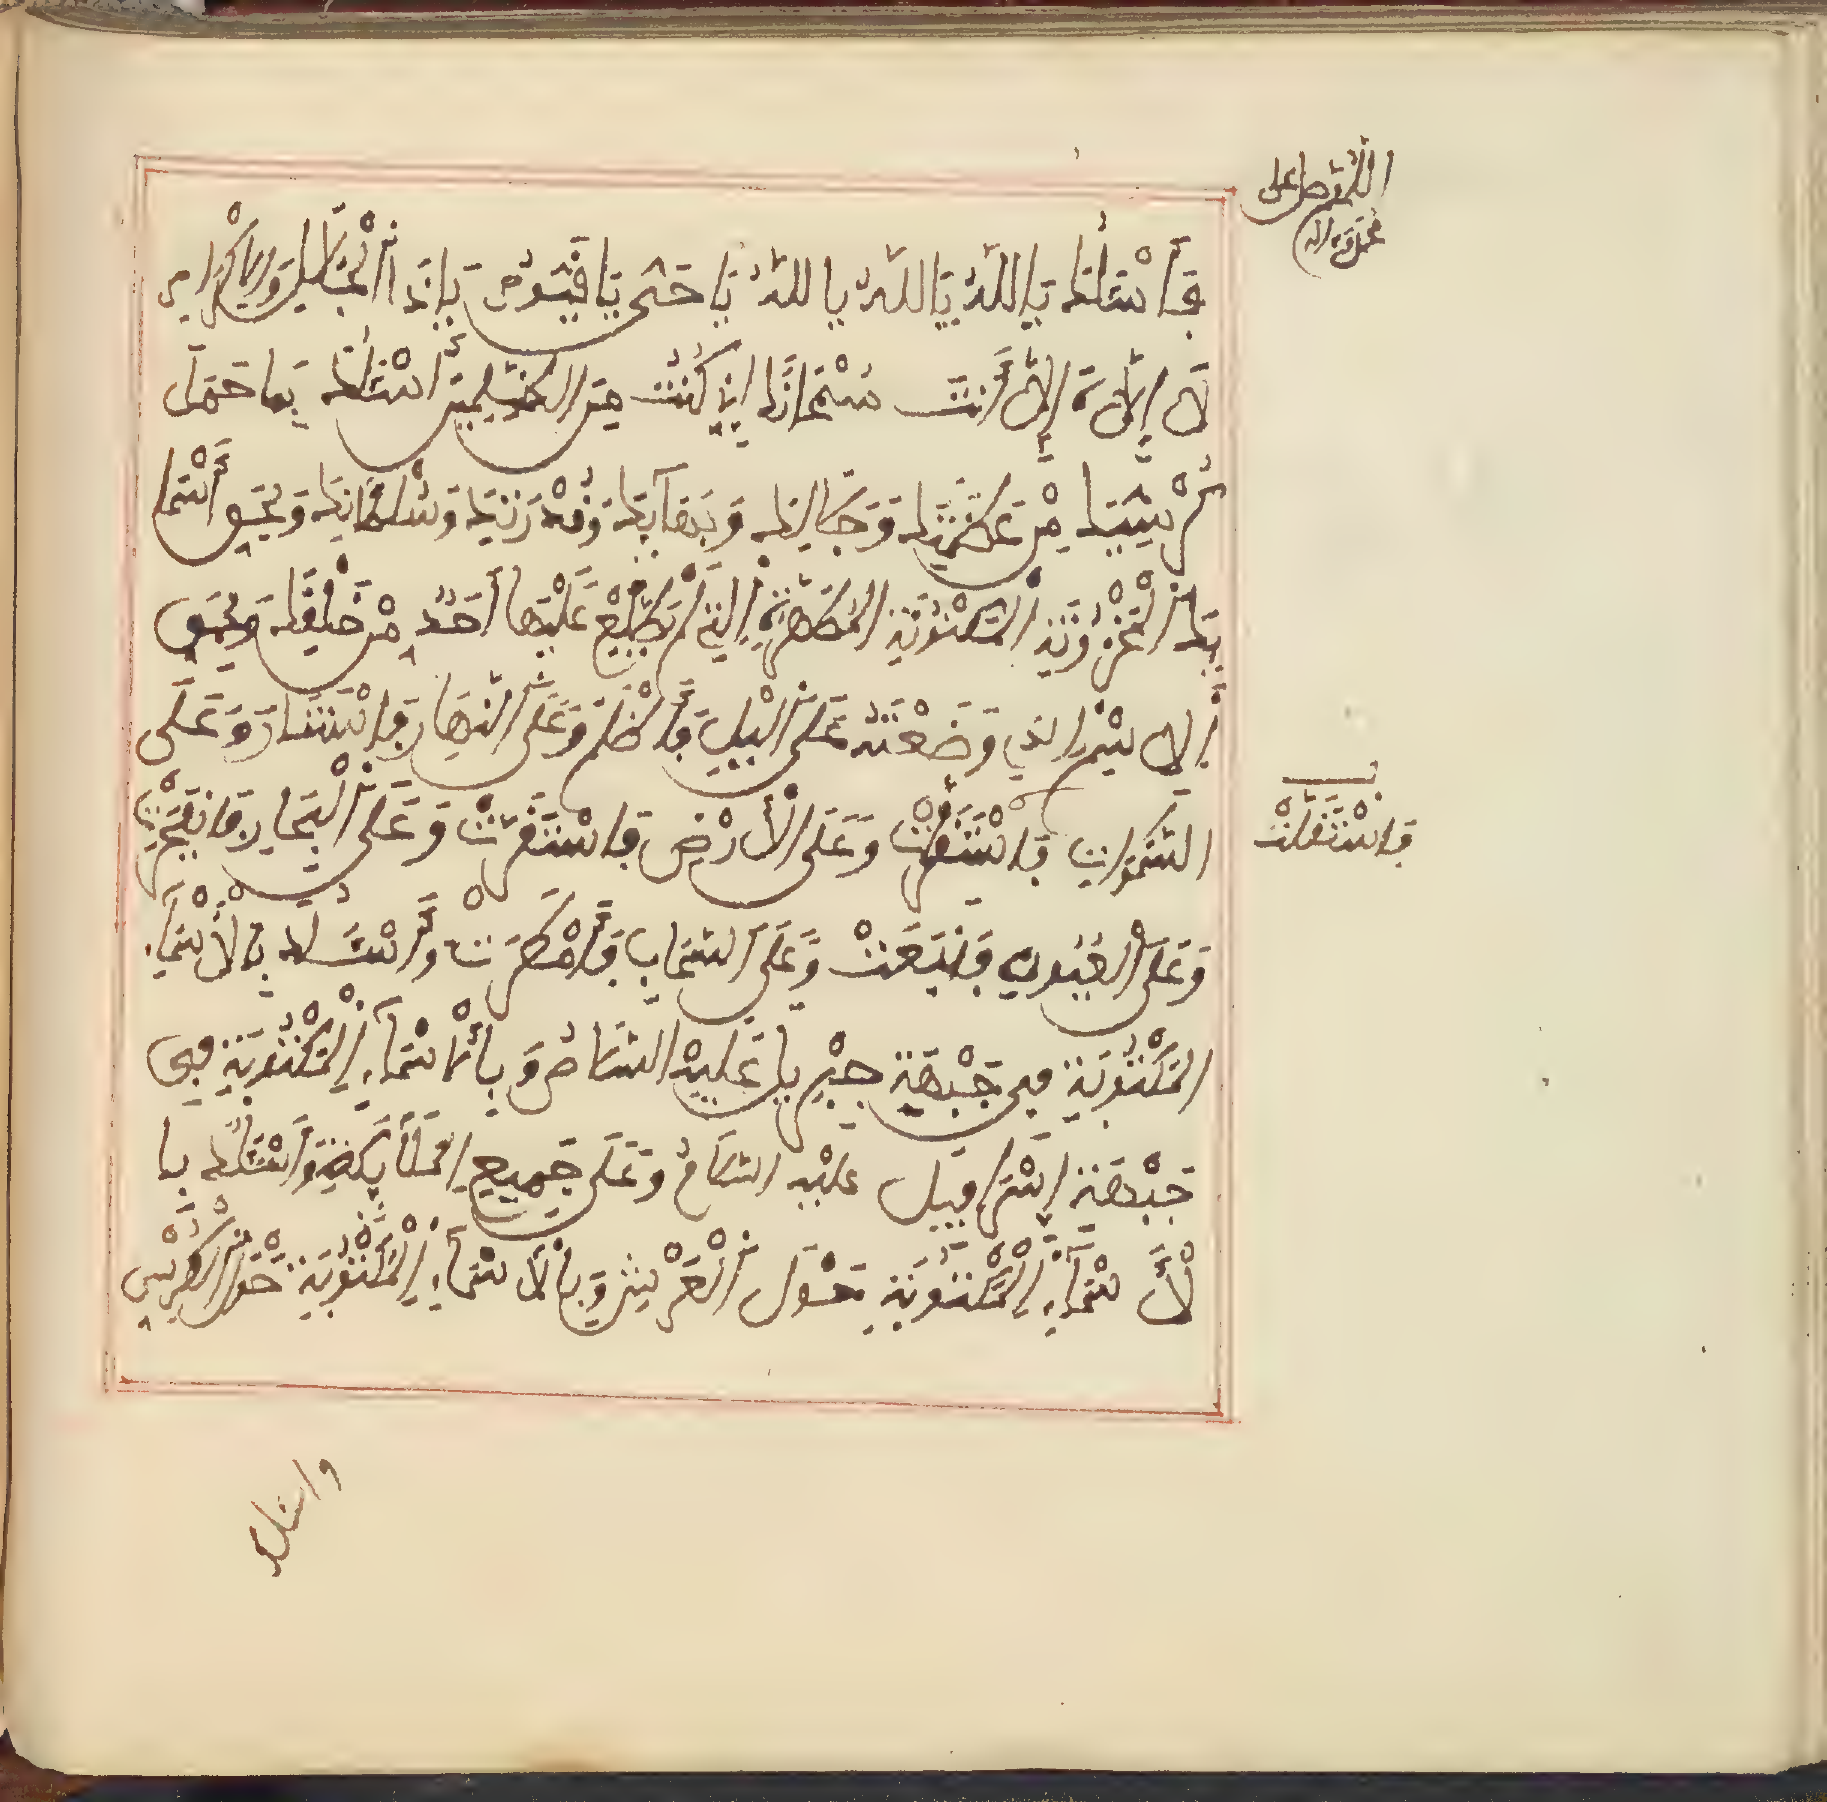 اللهم صل على
محمد وءاله
فأسئلك يا الله يا الله يا الله يا حي يا قيوم يا ذا الجلال والاكرام
لا إله إلا أنت سبحانك إني كنت من الظلمين أسئلك بما حمل
كرسيك من عظمتك وجلالك وبهائك وقدرتك وسلطانك وبحق أسما
ئك المخزونة المكنونة المطهرة التي لم يطلع عليها أحد من خلقك وبحق
الاسم الذي وضعته على اليل فأظلم وعلى النهار فاستنار وعلى
السموات فاستقلت وعلى الأرض فاستقرت وعلى البحار فانفجرت
فاستقلت
وعلى العيون فنبعت وعلى السحاب فأمطرت وأسئلك بالأسماء
المكتوبة في جبهة جبريل عليه السلام وبالأسماء المكتوبة في
جبهة إسرافيل عليه السلام وعلى جميع الملائكة وأسئلك با
لأسماء المكتوبة حول العرش وبالأسماء المكتوبة حول الكرسي
واسئلك